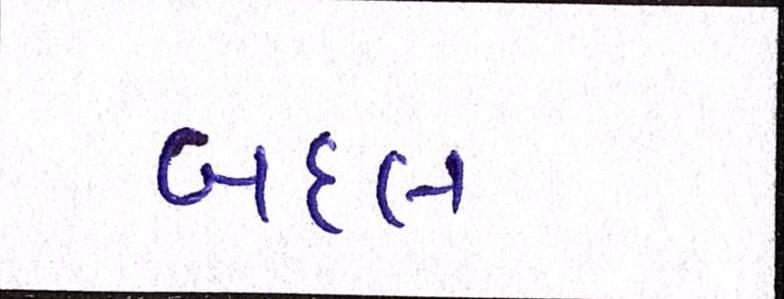 બદલ